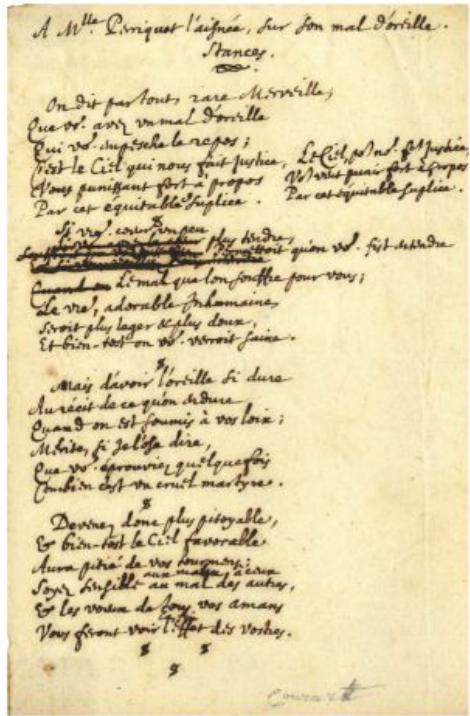 A Mlle Perriquet l'aisnée, sur son mal d'oreille.
Stances.
On dit par tout, rare Merveille,
Que vs. avez un mal d'oreille
Qui vs. empesche le repos;
C'est le Ciel qui nous fait justice,
Vous punissant fort à propos
Par cet équitable suplice.
Le Ciel, pr. ns. fe. justice,
Vs. veut punir fort à propos
Par cet équitable suplice.
Si vre. coeur un peu plus tendre,
qu'on vs. fist entendre
Le mal que l'on souffre pour vous;
Le vre, adorable Inhumaine,
Seroit plus leger & plus doux,
Et bien-tost on vs. verroit saine.
Mais d'avoir l'oreille si dure
Au récit de ce qu'on endure
Quand on est soumis à vos loix;
Mérite, si je l'ose dire,
Que vs. éprouviez quelque fois
Combien c'est un cruel martyre.
Devenez donc plus pitoyable,
& bien-tost le Ciel favorable
Aura pitié de vos tourmens;
aux maux à ceux
Soyez sensible au mal des autres,
& les voeux de tous vos amans
Vous feront voir l'effet des vostres.
Conrart